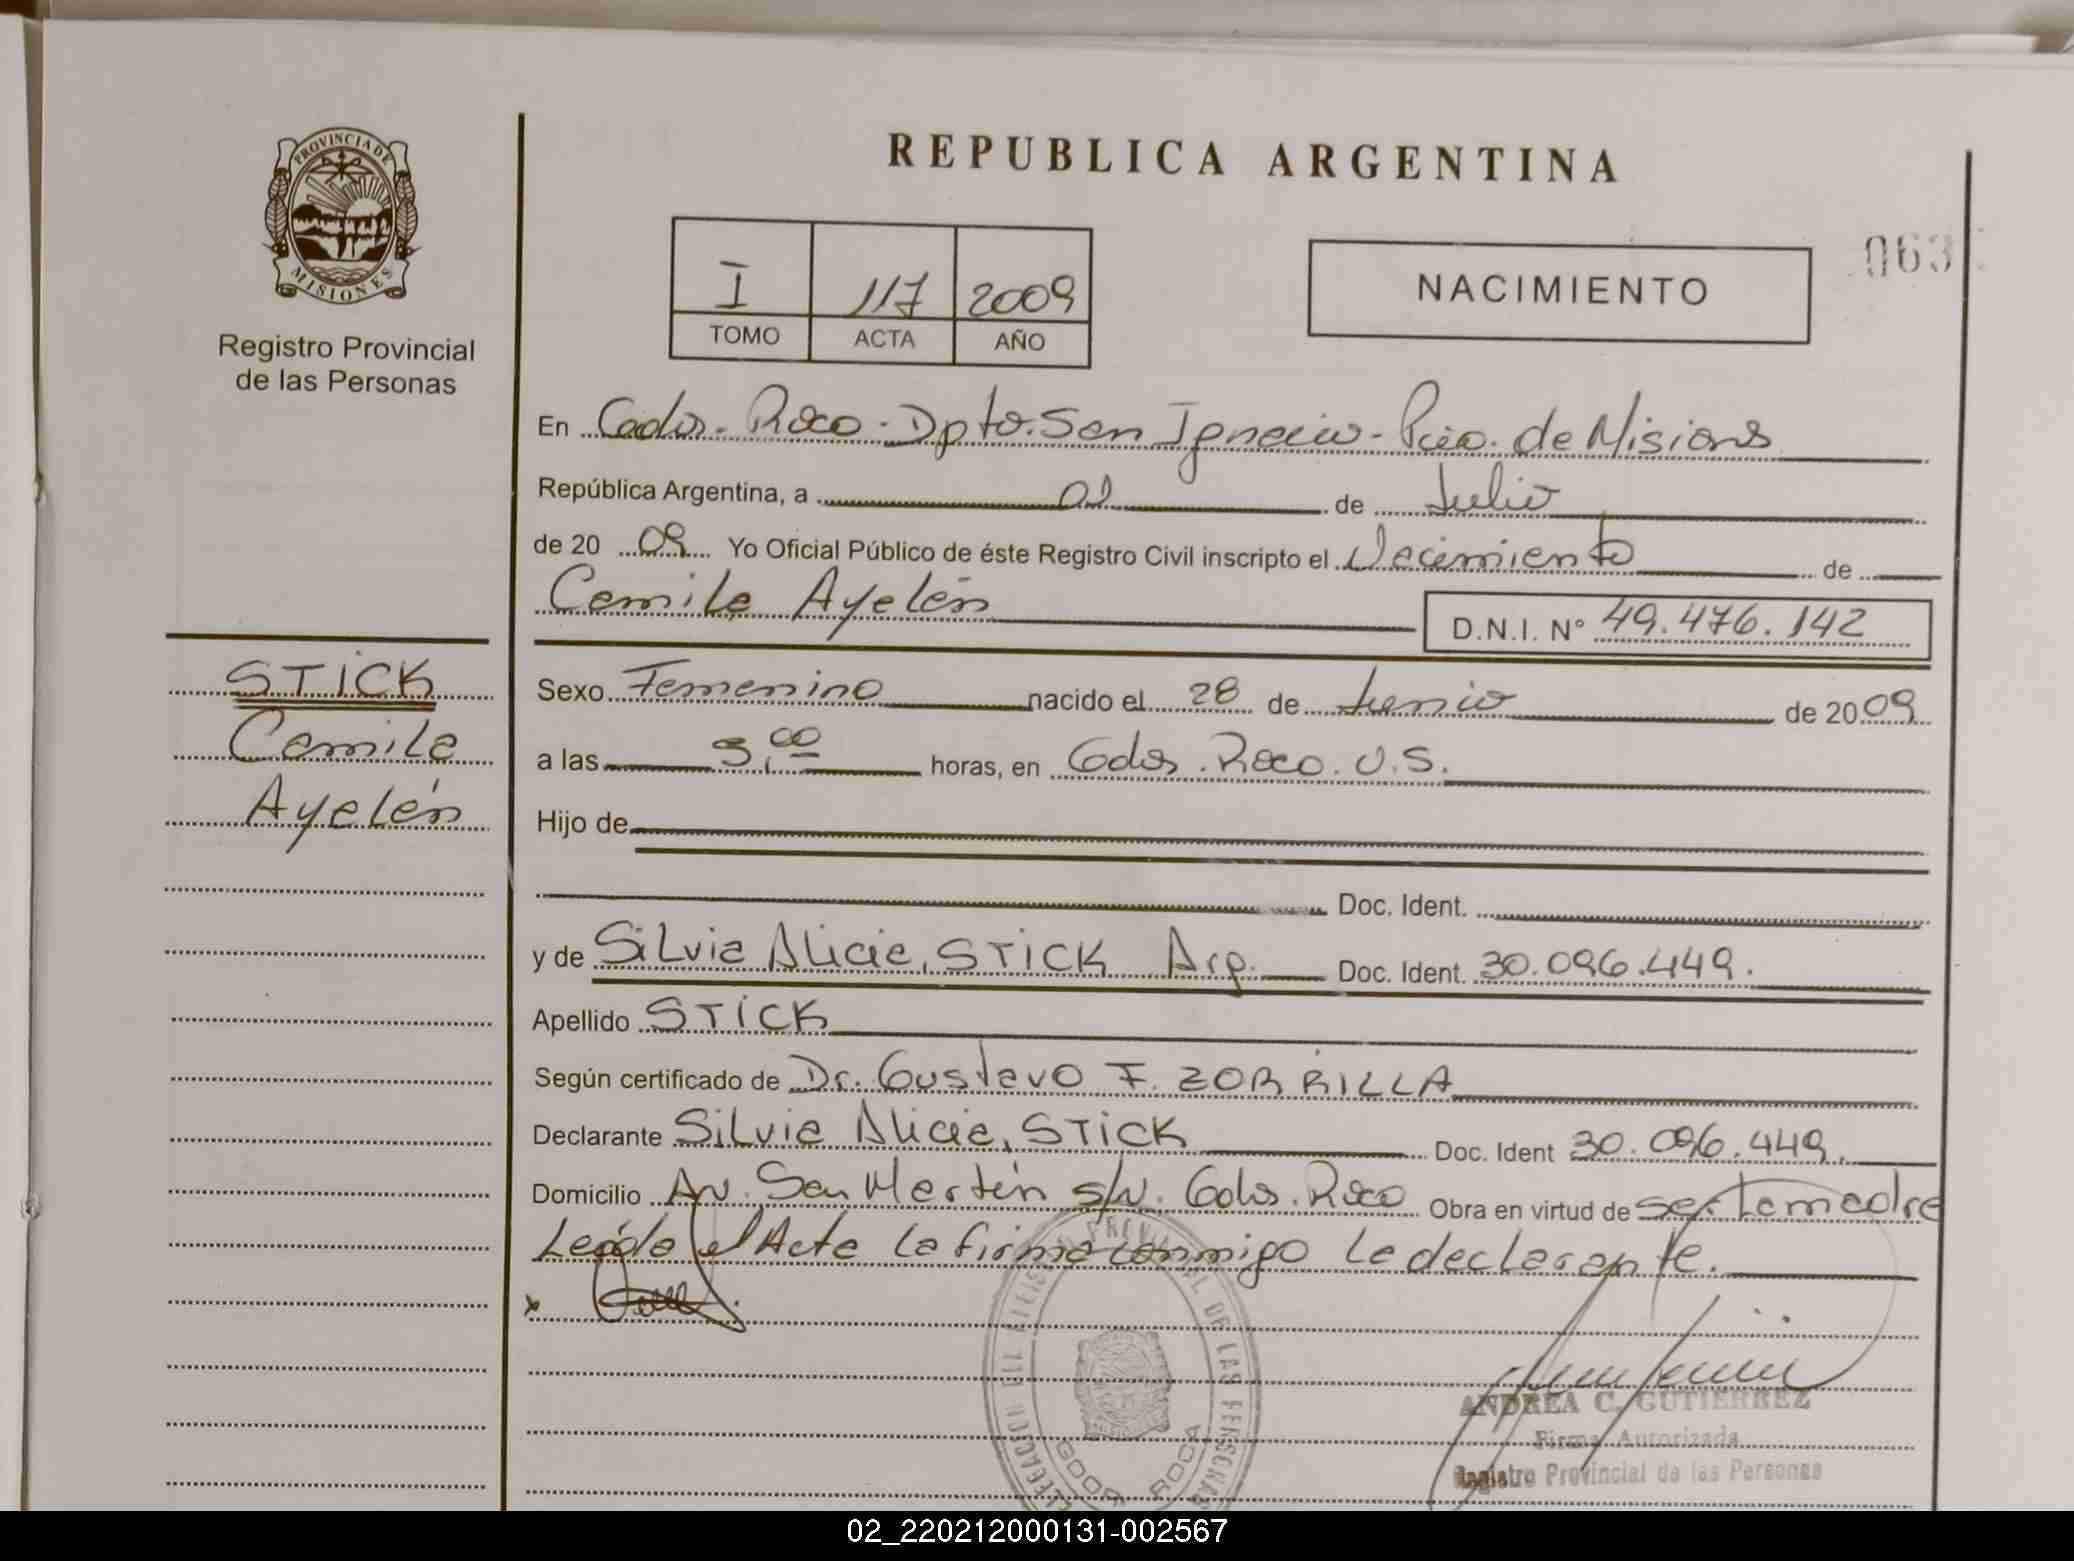 PROVINCIA DE
MISIONES
Registro Provincial
de las Personas
REPUBLICA ARGENTINA
I 117 2009
TOMO ACTA AÑO
NACIMIENTO
063
En Gdor. Roca - Dpto. San Ignacio - Pcia. de Misiones
República Argentina, a 01 de Julio
de 20 09 Yo Oficial Público de éste Registro Civil inscripto el Nacimiento de
Camila Ayelén
D.N.I. N° 49.476.142
STICK
Camila
Ayelén
Sexo Femenino nacido el 28 de Junio de 2009
a las horas, en Gdor. Roca. U.S.
Hijo de
Doc. Ident.
y de Silvia Alicia, STICK Arg. Doc. Ident. 30.096.449.
Apellido STICK
Según certificado de Dr. Gustavo F. ZORRILLA
Declarante Silvia Alicia, STICK Doc. Ident 30.096.449.
Domicilio Av. San Martín s/N. Gdor. Roca Obra en virtud de ser la madre
Leída el Acta la firma conmigo la declarante.
x
DELEGACION DEL REGISTRO PROVINCIAL DE LAS PERSONAS
GDOR ROCA
ANDREA C. GUTIERREZ
Firma Autorizada
Registro Provincial de las Personas
02_220212000131-002567